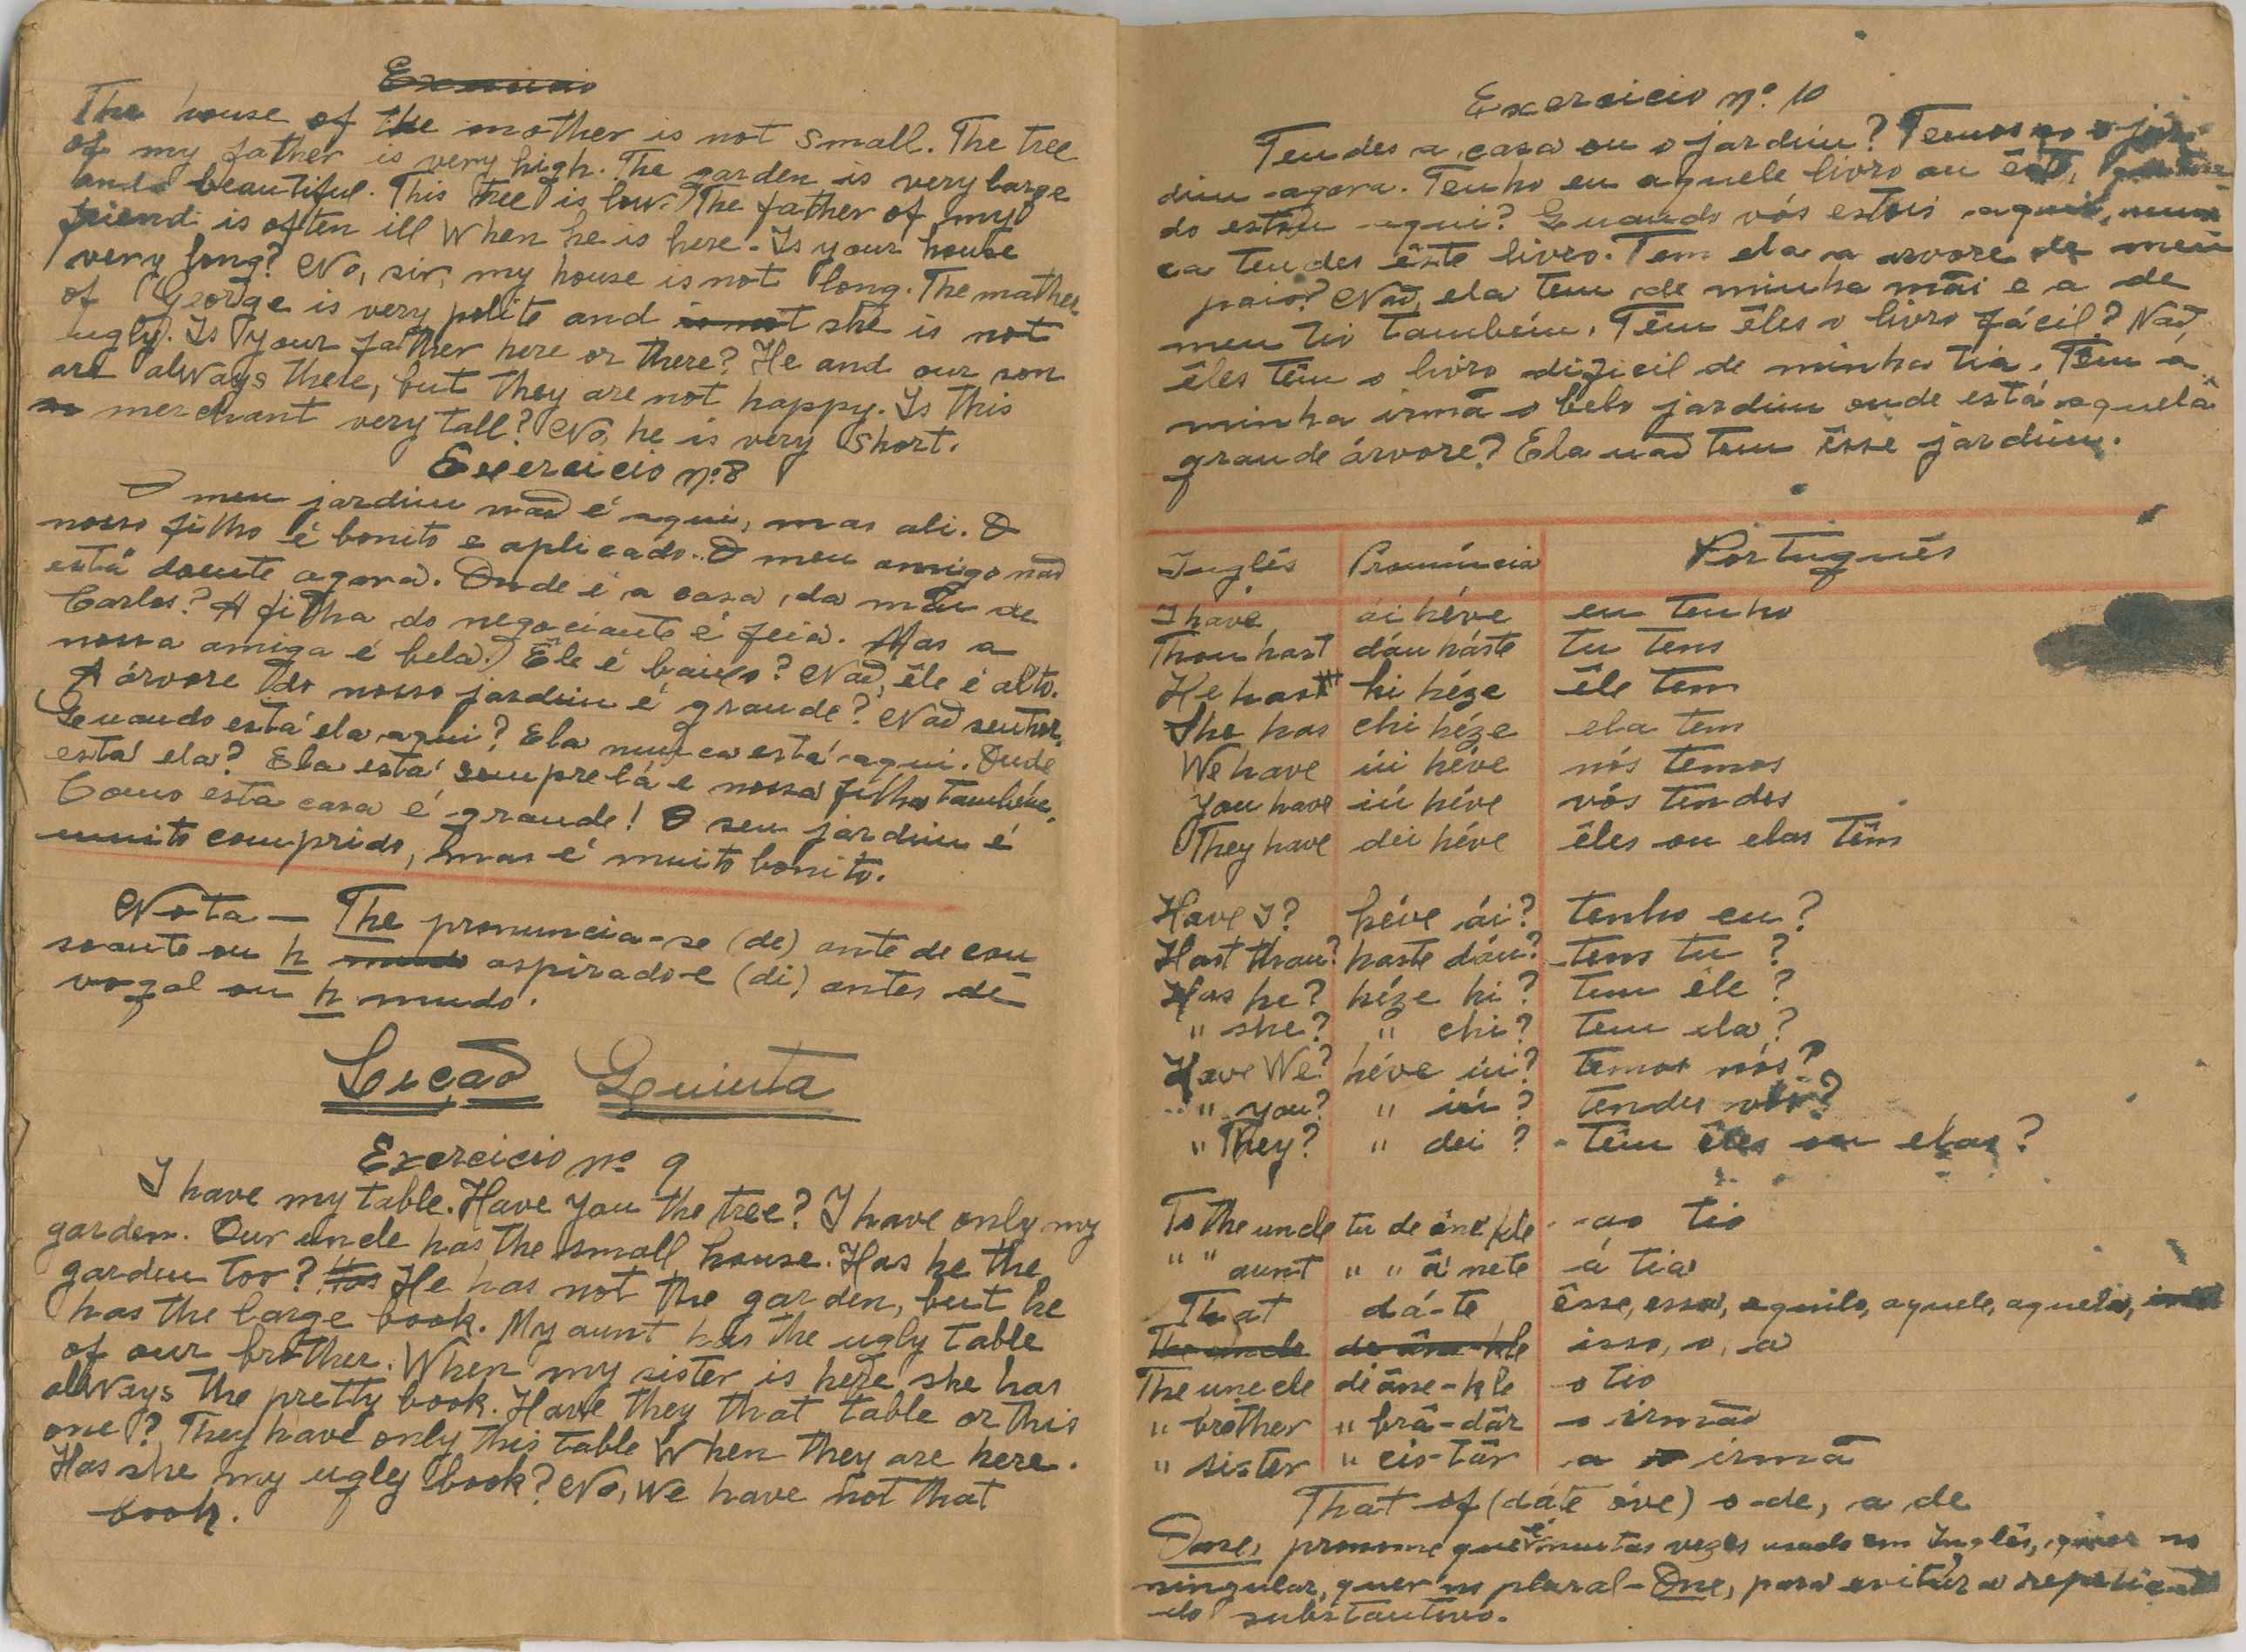 Exercicio
The house of the mother is not small. The tree
of my father is very high. The garden is very large
and beautiful. This tree is low. The father of my
friend is often ill When he is here. Is your house
very long? No, sir, my house is not long. The mother
of George is very polite and is not she is not
ugly. Is your father here or there? He and our son
are always there, but they are not happy. Is this
merchant very tall? No, he is very short.
Exercicio nº 8
O meu jardim não é aqui, mas ali. O
nosso filho é bonito e aplicado. O meu amigo não
está doente agora. Onde é a casa da mãe de
Carlos? A filha do negociante é feia. Mas a
nossa amiga é bela. Êle é baixo? Não, êle é alto.
A árvore do nosso jardim é grande? Não senhor.
Quando está ela aqui? Ela nunca está aqui. Onde
está ela? Ela está sempre lá e nossa filha também.
Como esta casa é grande! O seu jardim é
muito comprido, mas é muito bonito.
Nota — The pronuncia-se (de) ante de con
soante ou h mudo aspirado e (di) antes de
vogal ou h mudo.
Lição Quinta
Exercicio nº 9
I have my table. Have you the tree? I have only my
garden. Our uncle has the small house. Has he the
garden too? Has He has not the garden, but he
has the large book. My aunt has the ugly table
of our brother. When my sister is here she has
always the pretty book. Have they that table or this
one? They have only this table When they are here.
Has she my ugly book? No, we have not that
book.
Exercicio nº 10
Tendes a casa ou o jardim? Temos o jar
dim agora. Tenho eu aquele livro ou êste,
do estou aqui? Quando vós estais aqui, nun
ca tendes êste livro. Tem ela a arvore de meu
pais? Não, ela tem de minha mãi e a de
meu tio também. Têm êles o livro fácil? Não,
êles têm o livro dificil de minha tia. Tem a
minha irmã o belo jardim onde está aquela
grande árvore? Ela não tem êsse jardim.
Inglês Pronúncia Português
I have ái héve eu tenho
Thou hast dáu háste tu tens
He has hi héze êle tem
She has chi héze ela tem
We have úi héve nós temos
You have iú héve vós tendes
They have dei héve êles ou elas têm
Have I? héve ái? tenho eu?
Hast thou? haste dáu? tens tu?
Has he? héze hi? tem êle?
" she? " chi? tem ela?
Have We? héve úi? temos nós?
" you? " iú? tendes vós?
" They? " dei? têm êles ou elas?
To the uncle tu de ânc'kle ao tio
" " aunt " " â'nete á tia
That dá-te êsse, essa, aquilo, aquele, aquela,
The uncle de âne-kle isso, o, a
The uncle di âne-kle o tio
" brother " brâ-dâr o irmão
" sister " cis-târ a irmã
That of (dáte óve) o de, a de
One, pronome que é muitas vezes usado em Inglês, quer no
singular, quer no plural - One, para evitar a repetição
do substantivo.